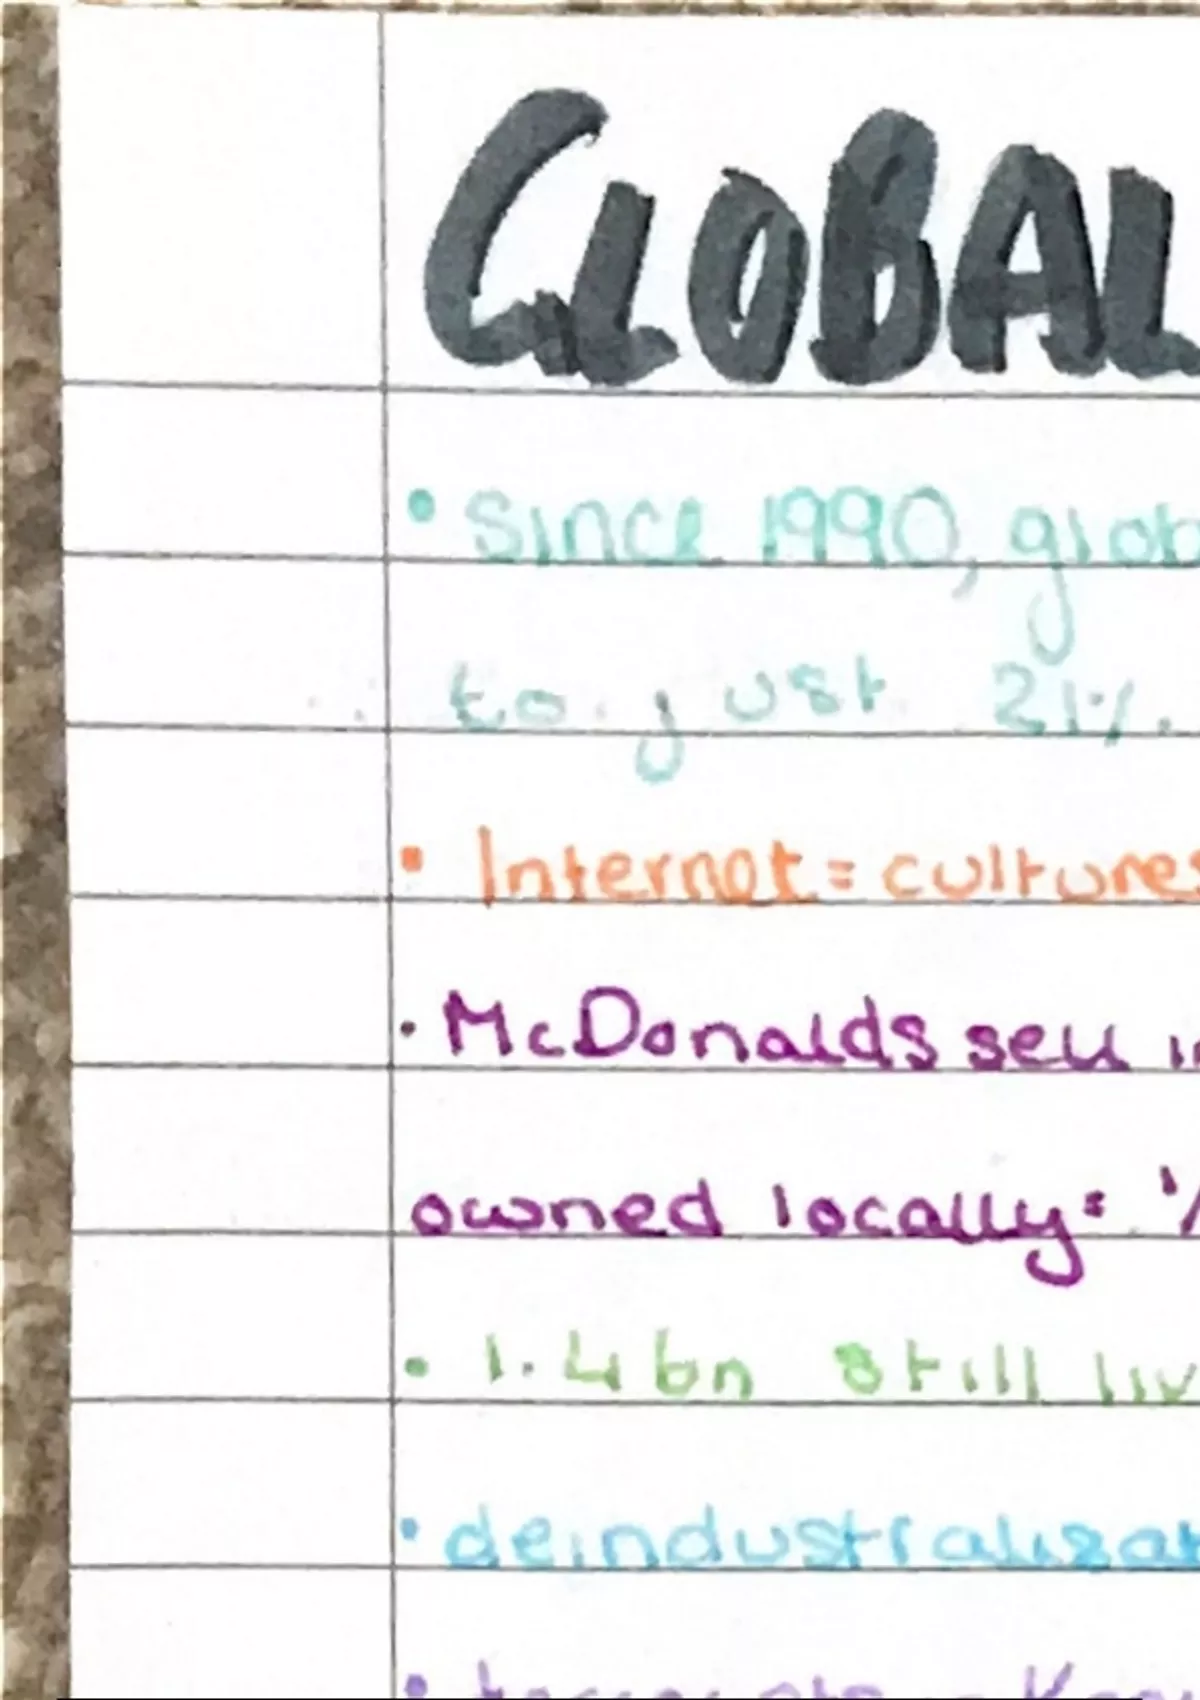 GLOBAL
• Since 1990, glob
to just 21%.
• Internet = cultures
• McDonalds sell in
owned locally =
• 1.4bn still liv
• deindustrializat